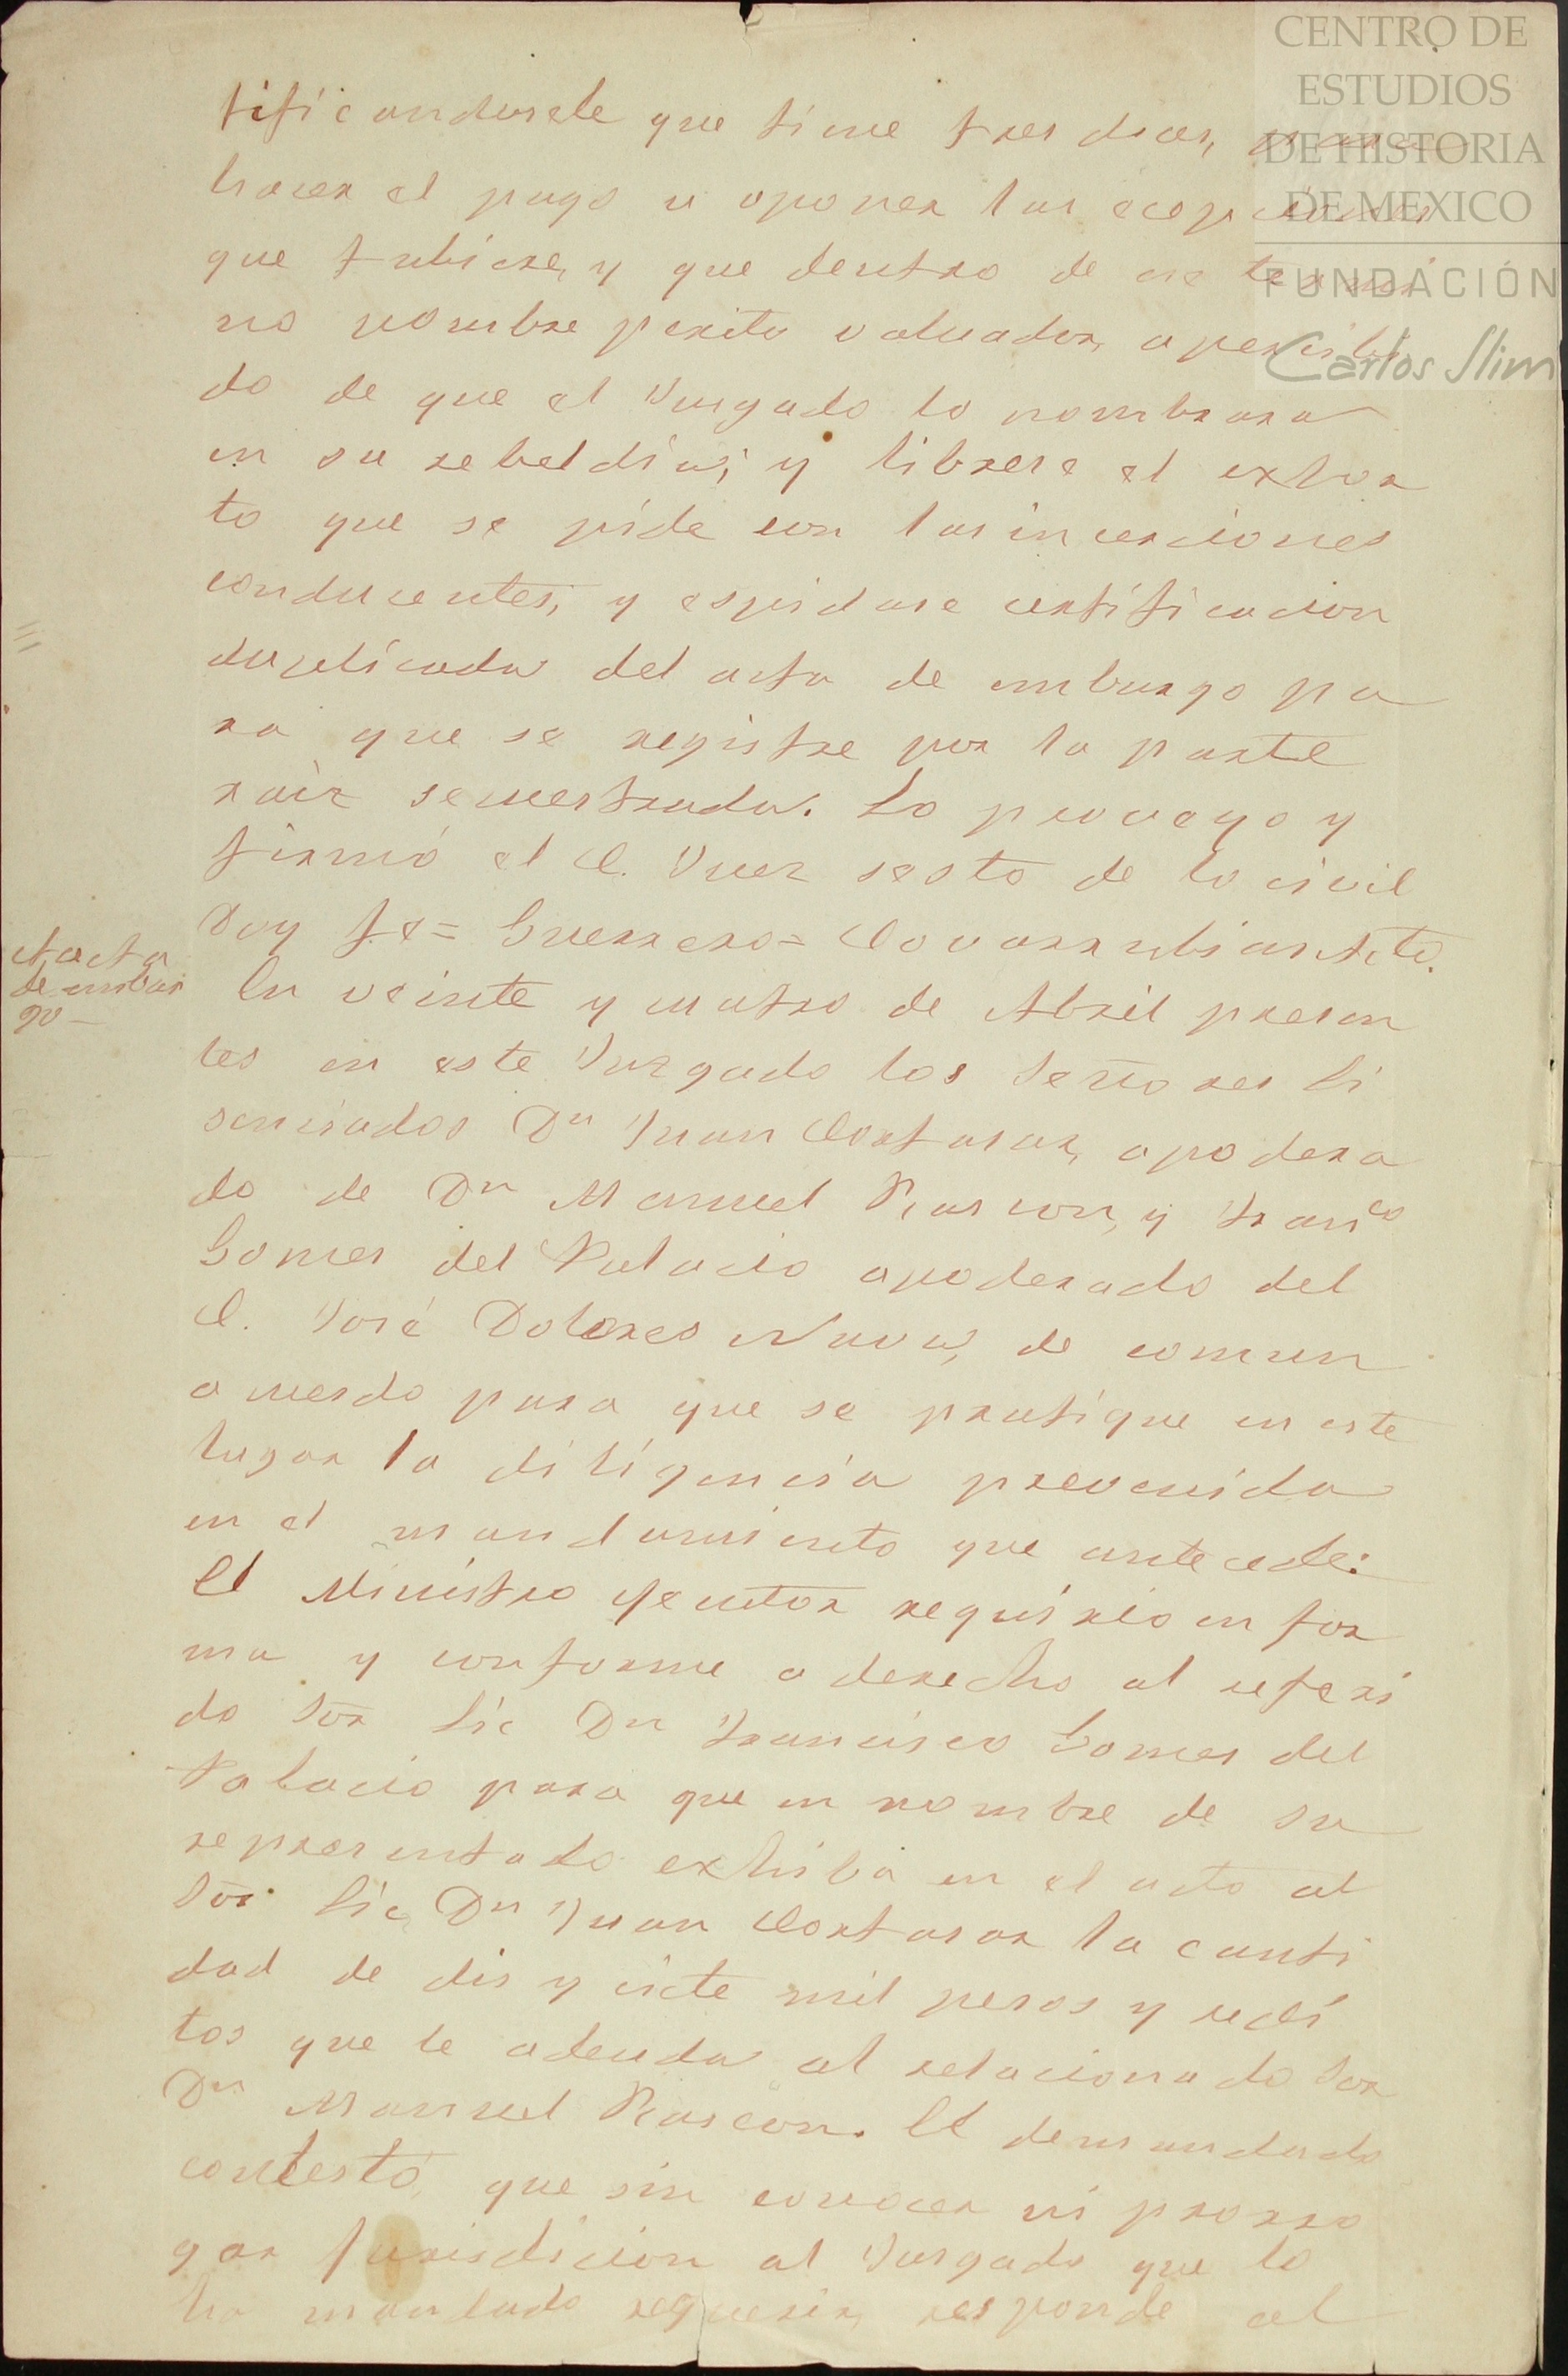 CENTRO DE
ESTUDIOS
DE HISTORIA
DE MEXICO
FUNDACIÓN
Carlos Slim
tificandosele que tiene tres dias, para
hacer el pago u oponer las ecepciones
que tubiere, y que dentro de ese termi
no nombre perito valuador, apercibi
do de que el Jusgado lo nombrara
en su rebeldia; y librese el exhor
to que se pide con las incerciones
conducentes, y espidase certificacion
duplicada del acta de embargo pa
ra que se registre por la parte
raiz secuestrada. Lo proveyo y
firmó el C. Juez sesto de lo civil
Doy fe= Guerrero= Covarrubias Acto.
Acta
de embar
go
En veinte y cuatro de Abril presen
tes en este Juzgado los Señores Li
senciados Dn Juan Cortasar, apodera
do de Dn Manuel Rascon, y Franco
Gomes del Palacio apoderado del
C. José Dolores Nava, de comun
acuerdo para que se pratique en este
lugar la diligencia prevenida
en el mandamiento que antecede:
El Ministro Ejecutor requirió en for
ma y conforme a derecho al referi
do Sor Lic Dn Francisco Gomes del
Palacio para que en nombre de su
representado exhiba en el acto al
Sor Lic Dn Juan Cortasar la canti
dad de dis y ciete mil pesos y redi
tos que le adeuda al relacionado Sor
Dn Manuel Rascon. El demandado
contestó, que sin conocer ni prorro
gar jurisdicion al Jusgado que lo
ha mandado requerir, responde al